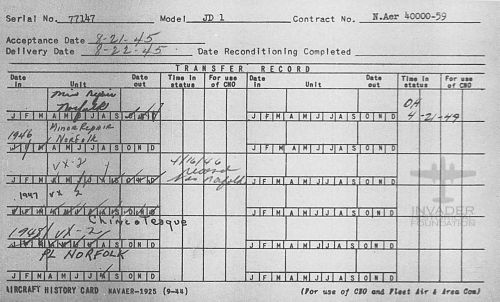 Serial No. 77147 Model JD 1 Contract No. N.Aer 40000-59
Acceptance Date 8-21-45
Delivery Date 8-22-45 Date Reconditioning Completed
TRANSFER RECORD
Date in Unit Date out Time in status For use of CNO Date in Unit Date out Time in status For use of CNO
Minor Repair
Norfolk OH
J F M A M J J A S O N D J F M A M J J A S O N D 4-21-49
1946 Minor Repair
Norfolk
J F M A M J J A S O N D J F M A M J J A S O N D
VX-2 4/16/46
record
Norfolk
J F M A M J J A S O N D J F M A M J J A S O N D
1947 VX 2
J F M A M J J A S O N D J F M A M J J A S O N D
Chincoteague
1948 VX-2
J F M A M J J A S O N D J F M A M J J A S O N D
PL NORFOLK
J F M A M J J A S O N D J F M A M J J A S O N D
INVADER
FOUNDATION
AIRCRAFT HISTORY CARD NAVAER-1925 (9-44) (For use of CNO and Fleet Air & Area Com)